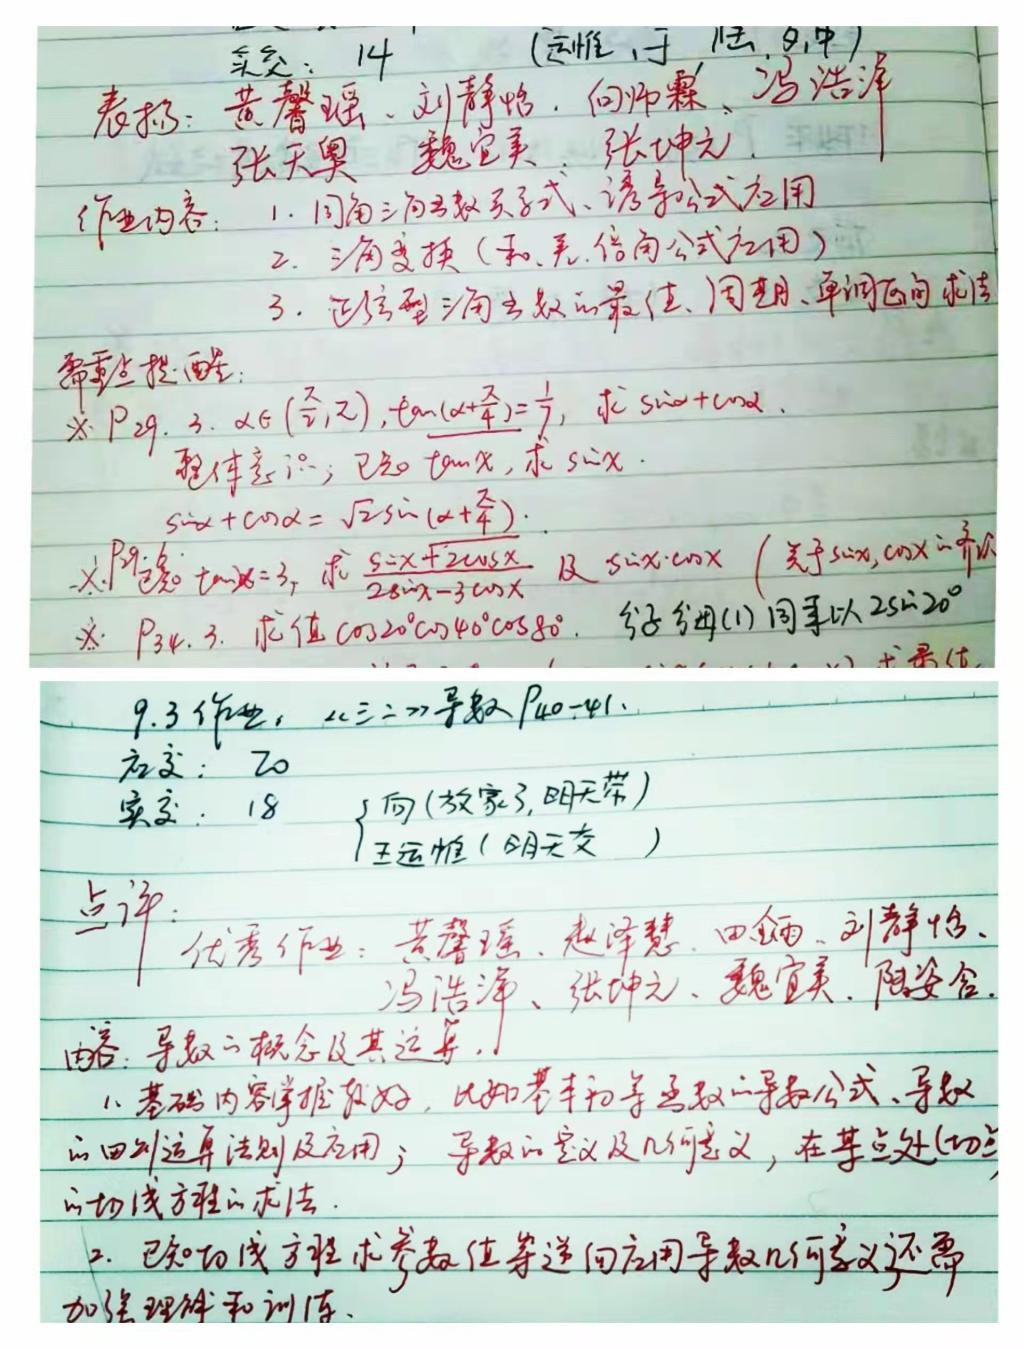 实交: 14
表扬: 黄馨瑶、刘静怡、向师霖、冯浩洋
张天奥 魏宜美、张坤元.
作业内容: 1. 同角三角函数关系式、诱导公式应用
2. 三角变换(和、差、倍角公式应用)
3. 正弦型三角函数的最值、周期、单调区间求法
需重点提醒:
※ P29. 3. α∈(π/2, π), tan(α+π/4)=1/7, 求 sinα+cosα.
整体意识; 已知 tanx, 求 sinx.
sinα+cosα=√2sin(α+π/4).
※ P29. 已知 tanx=3, 求 (sinx+2cosx)/(2sinx-3cosx) 及 sinx·cosx (关于sinx,cosx的齐次
※ P34. 3. 求值 cos20°cos40°cos80°. 分子分母(1)同乘以2sin20°
9.3作业: 《三二》导数 P40-41.
应交: 20
实交: 18 {向(放家了,明天带)
王运惟(明天交)
点评:
优秀作业: 黄馨瑶、赵泽慧、田、刘静怡、
冯浩洋、张坤元、魏宜美、陈姿含.
内容: 导数的概念及其运算.
1. 基础内容掌握较好, 比如基本初等函数的导数公式、导数
的四则运算法则及应用; 导数的定义及几何意义, 在某点处(切点)
的切线方程的求法.
2. 已知切线方程求参数值等逆向应用导数几何意义还需
加强理解和训练.